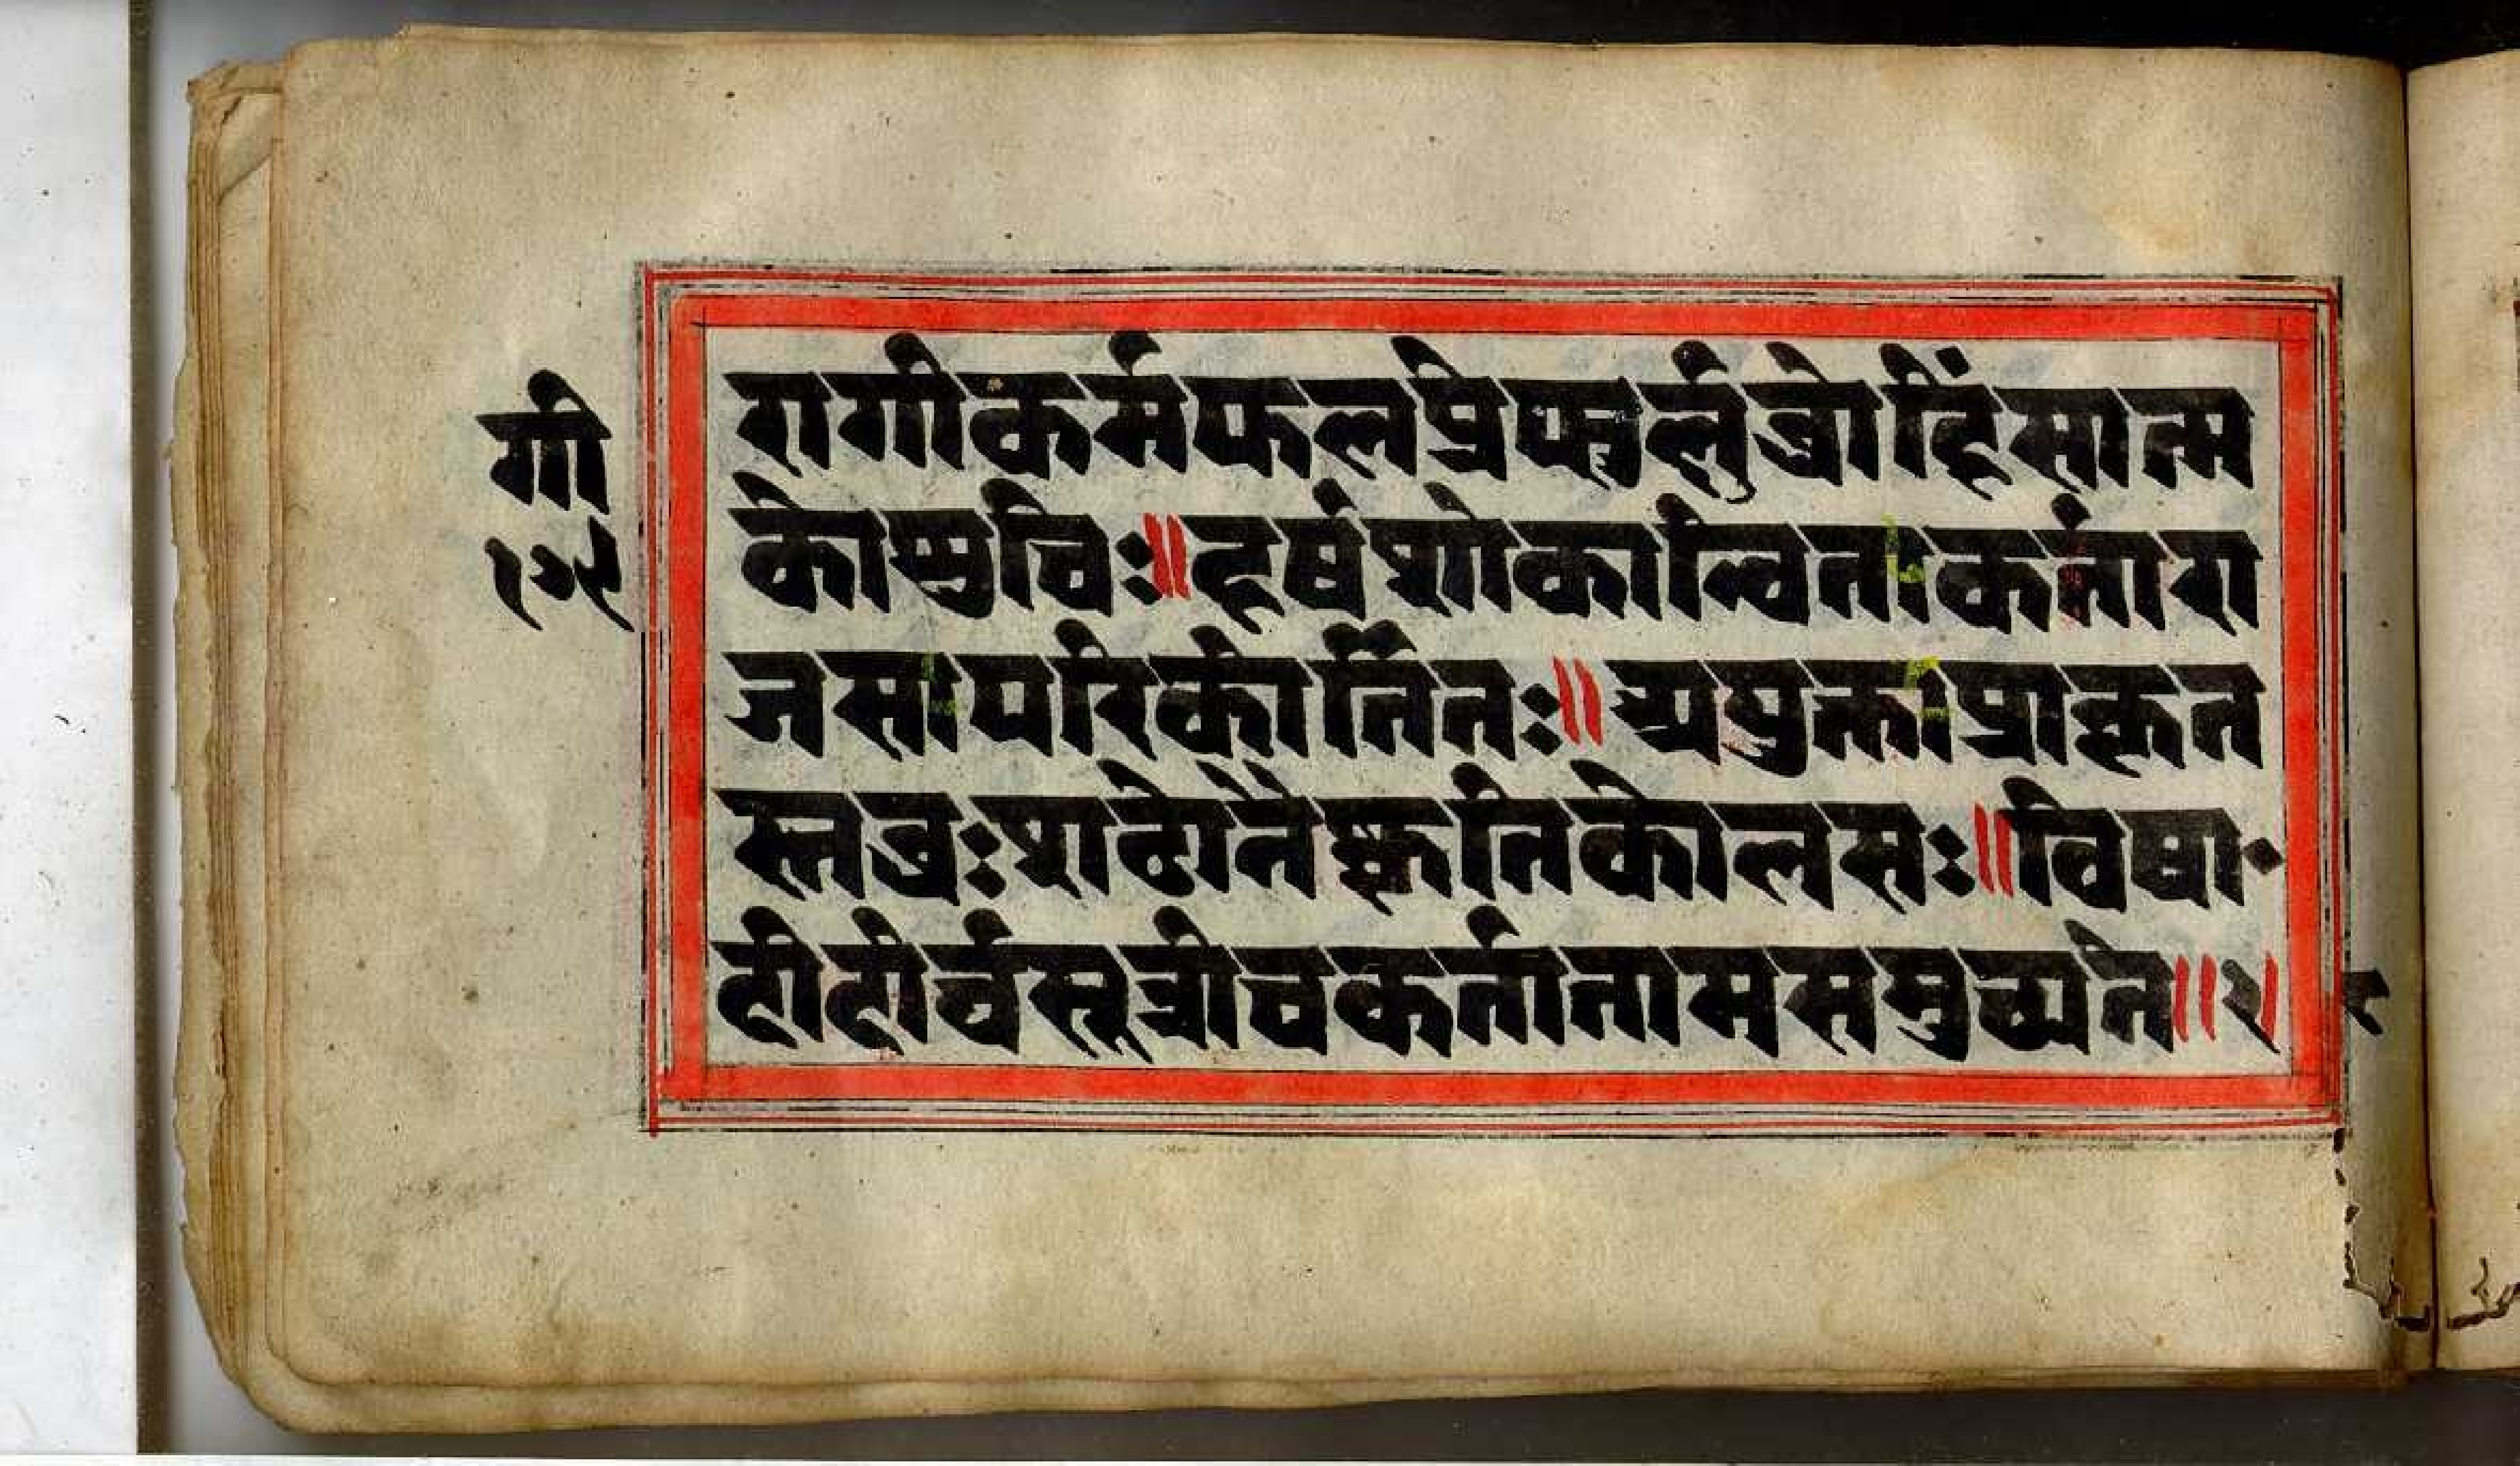 गी
१७९
रागीकर्मफलप्रेफ्सुर्लुब्धोहिंसात्म
कोशुचिः॥हर्षशोकान्वितःकर्त्तारा
जसःपरिकीर्तितः॥अयुक्तःप्राकृत
स्तब्धःशठोनैष्कृतिकोलसः॥विषा
दीदीर्घसूत्रीचकर्त्तातामसमुच्यते॥२८